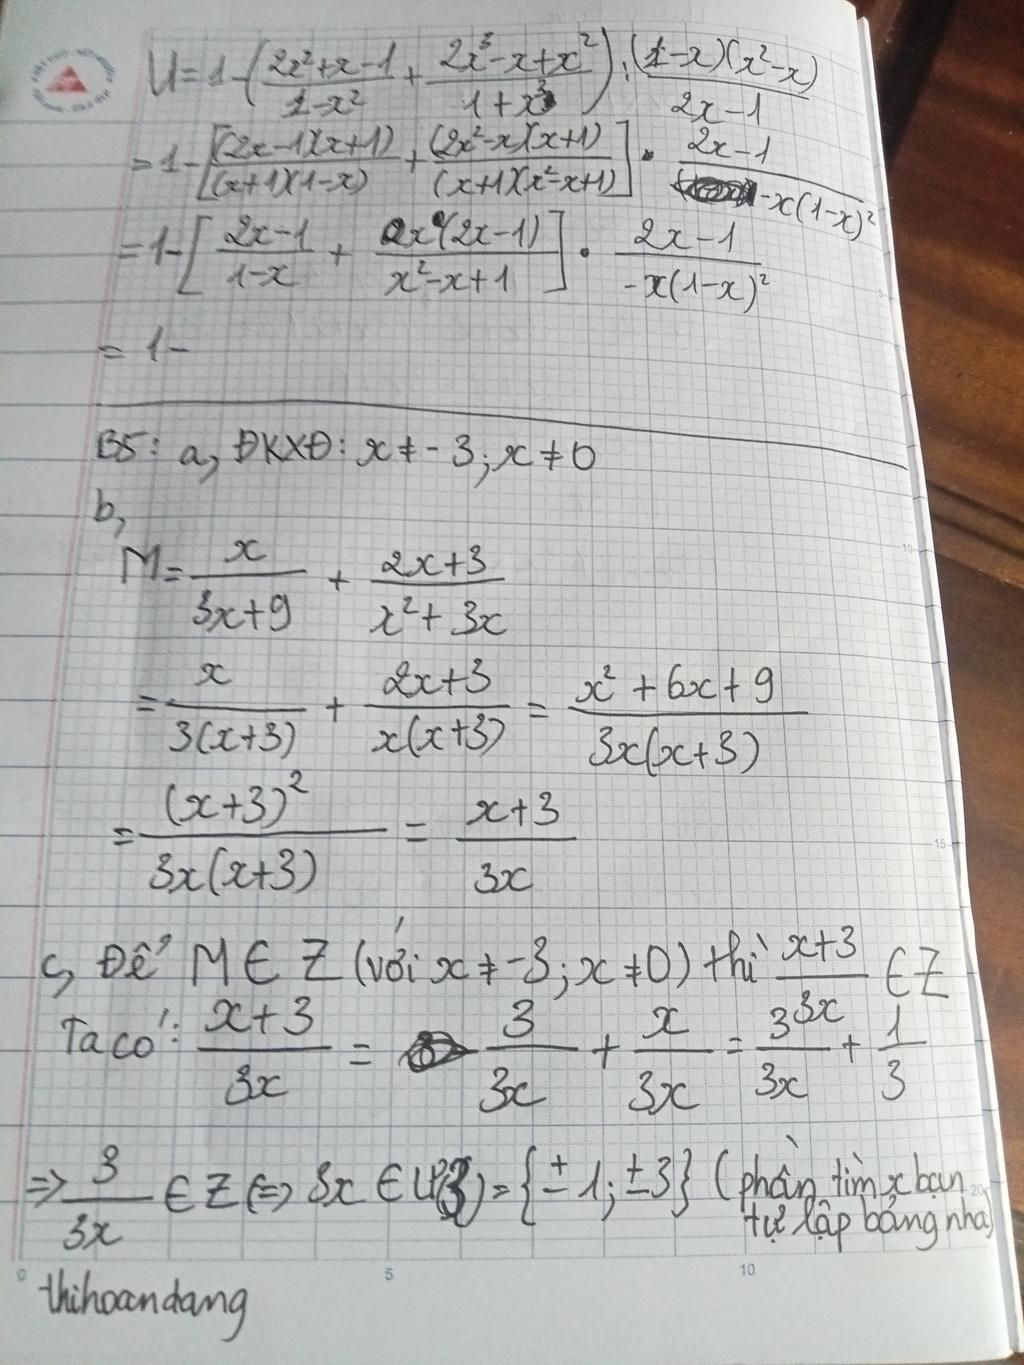 U = 1 - (2x²+x-1/1-x² + 2x³-x+x²/1+x³) : (1-x)(x²-x)/2x-1
= 1 - [(2x-1)(x+1)/(x+1)(1-x) + (2x²-x)(x+1)/(x+1)(x²-x+1)] . 2x-1/-x(1-x)²
= 1 - [2x-1/1-x + x(2x-1)/x²-x+1] . 2x-1/-x(1-x)²
= 1 -
B5: a, ĐKXĐ: x ≠ -3; x ≠ 0
b,
M = x/3x+9 + 2x+3/x²+3x
= x/3(x+3) + 2x+3/x(x+3) = x²+6x+9/3x(x+3)
= (x+3)²/3x(x+3) = x+3/3x
c, Để M ∈ Z (với x ≠ -3; x ≠ 0) thì x+3/3x ∈ Z
Ta có: x+3/3x = 3/3x + x/3x = 3/3x + 1/3
=> 3/3x ∈ Z <=> 3x ∈ Ư(3) = {±1; ±3} (phần tìm x bạn
tự lập bảng nha)
0 5 10
thihoandang